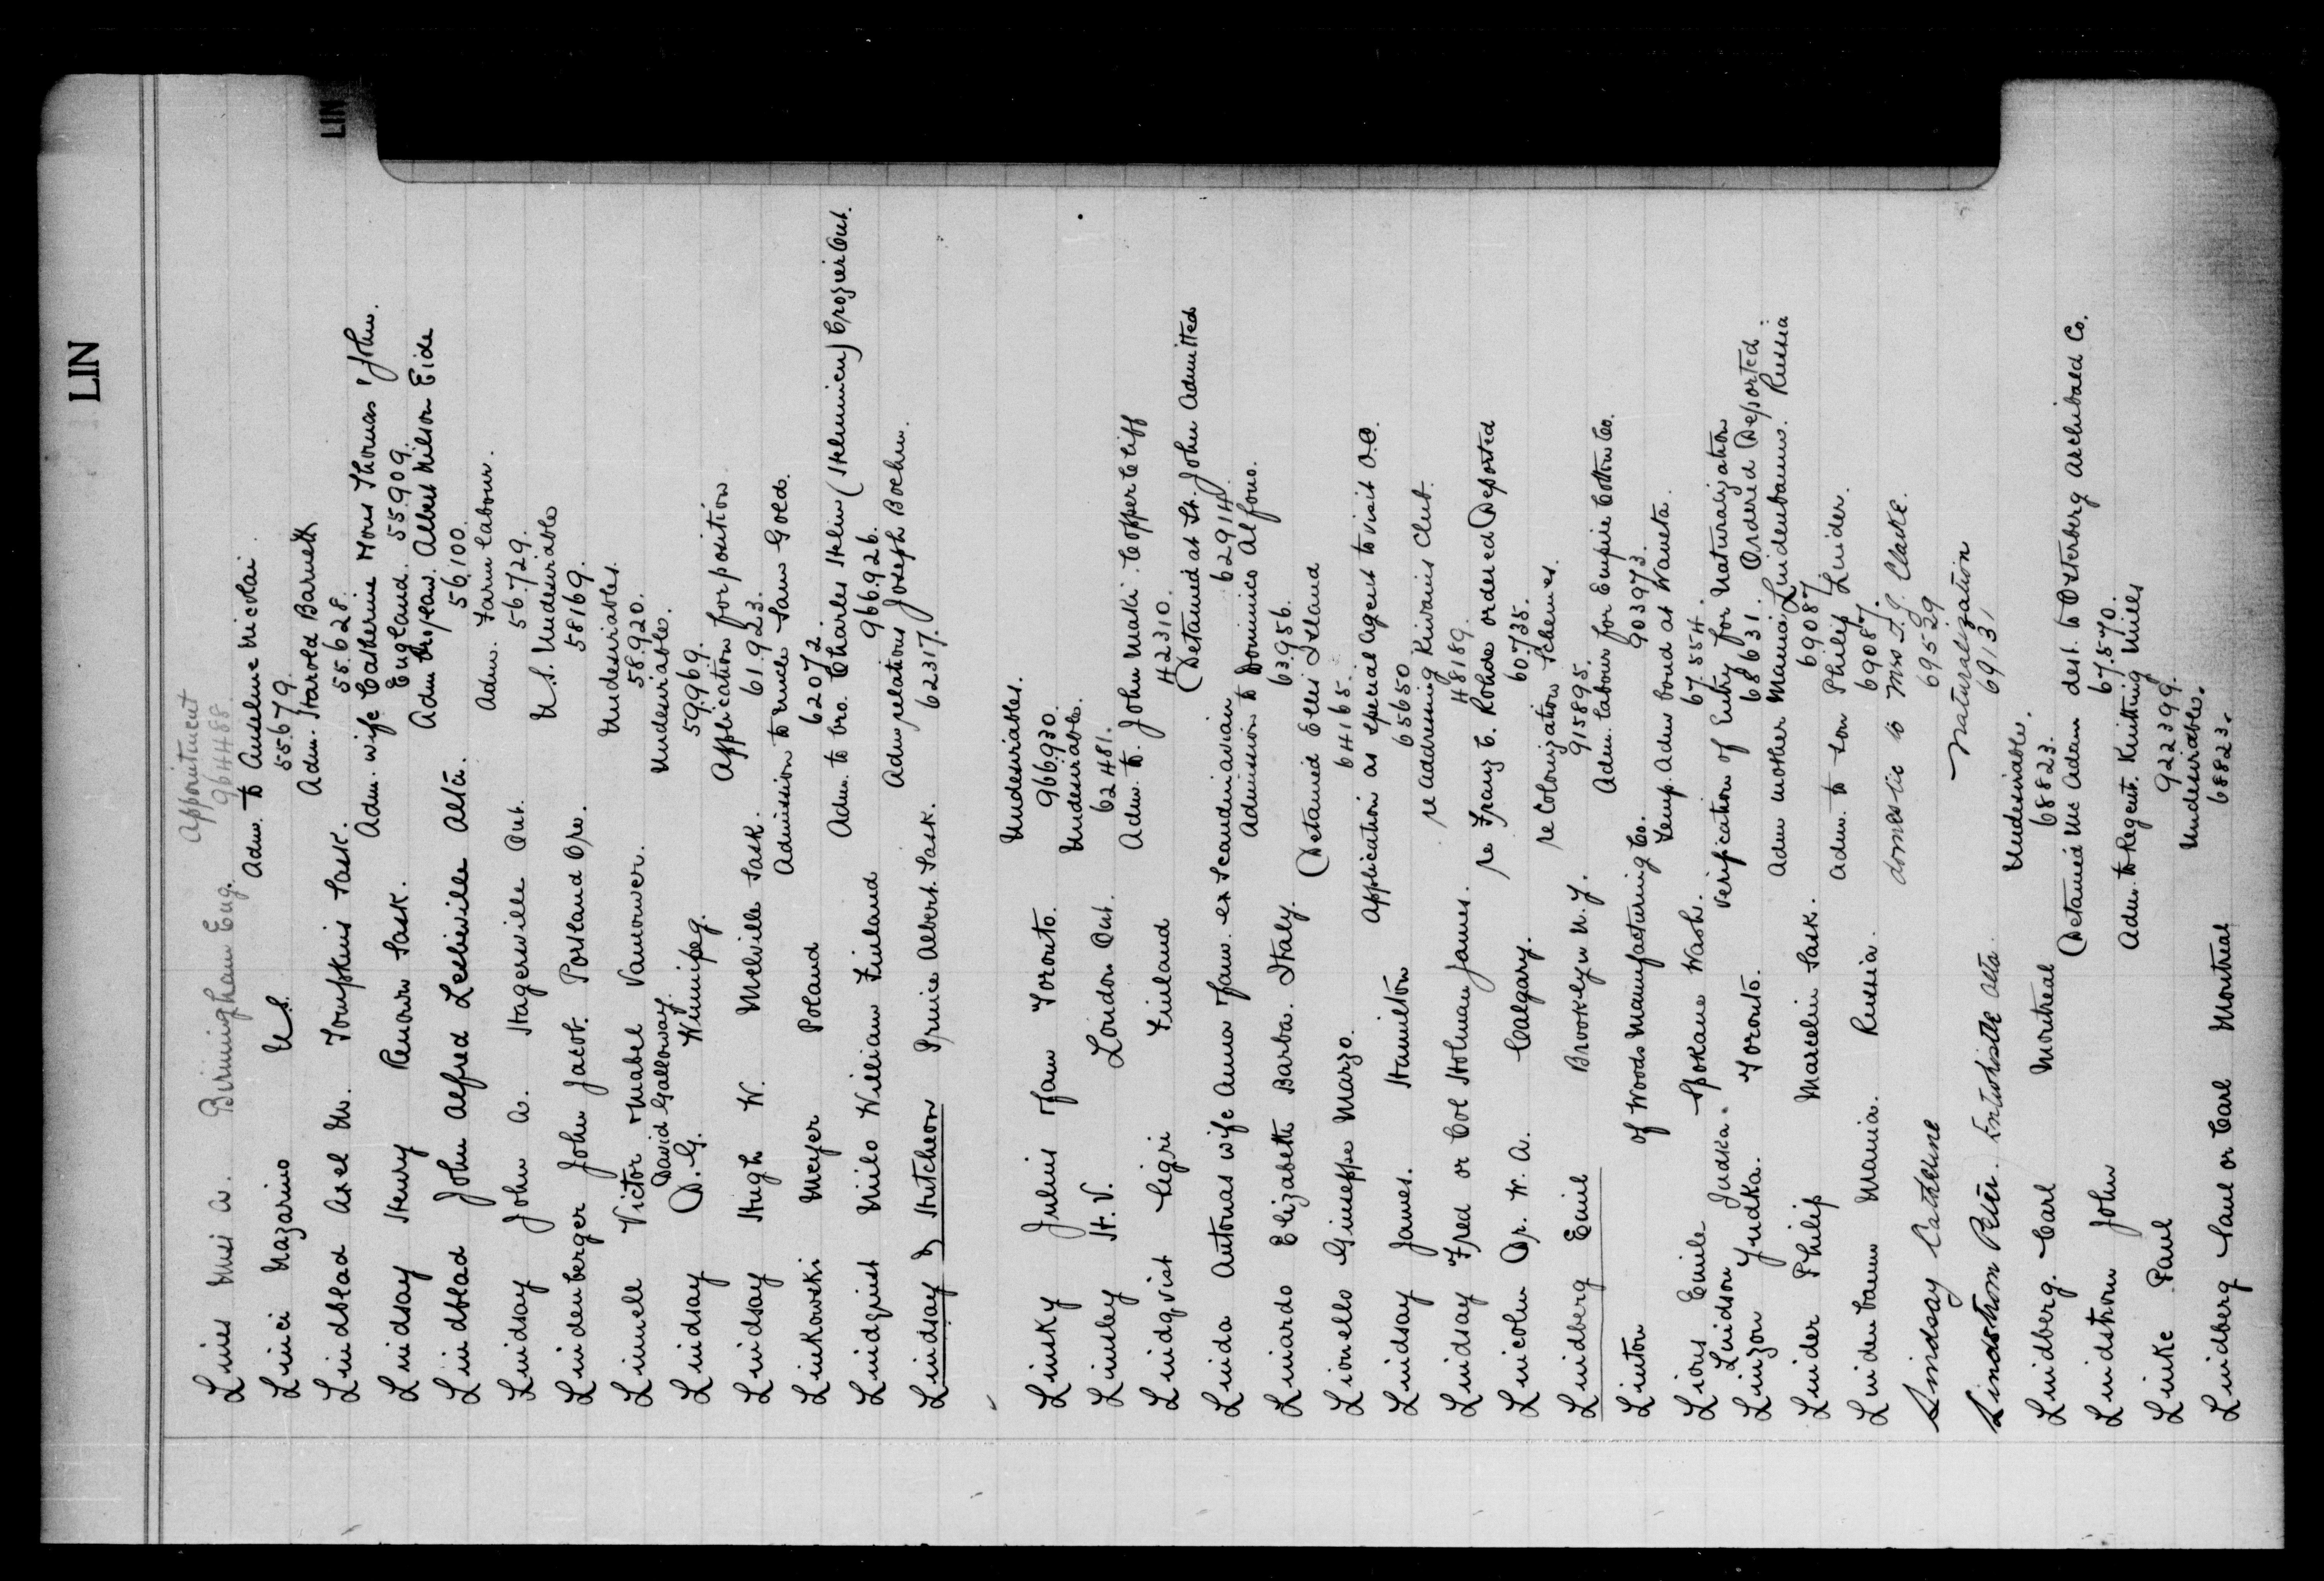 LIN
LIN
Lines Miss A. Birmingham Eng. Appointment
964488
Linci Nazarino U.S. Adm. to Anselme Nicolai.
55679.
Lindblad Axel M. Tompkins Sask. Adm. Harold Barnett
55628.
Lindsay Henry Renown Sask. Adm. wife Catherine sons Thomas & John.
England. 55909.
Lindblad John Alfred Leslieville Alta. Adm. Albert Nilson Eide
56100.
Lindsay John A. Hagersville Ont. Adm. Farm labour.
56729.
Lindenberger John Jacob. Portland Ore. U.S. Undesirable
58169.
Linnell Victor & Mabel Vancouver. Undesirables.
58920.
David Galloway.
Lindsay D. G. Winnipeg. Undesirable.
59969.
Lindsay Hugh W. Melville Sask. Application for position
61923.
Linkowski Meyer Poland Admission to uncle Sam Gold.
62072.
Lindquist Niilo William Finland Adm. to bro. Charles Crozier Ont.
966926.
Lindsay & Hutcheon Prince Albert. Sask. Adm relations Joseph Boehm.
62317.
Linsky Julius Toronto. Undesirables.
966930.
Linsley H. V. London Ont. Undesirable.
62481.
Lindqvist Finland Adm. to. John Maki. Copper Cliff
42310.
Linda Antonas wife Anna fam. ex Scandinavian (Detained at St. John Admitted
62914.
Linardo Elizabeth Barba. Italy. Admission to Dominico Alfono.
63956.
Lionello Giuseppe Marzo. (Detained Ellis Island
64165.
Lindsay James. Hamilton Application as special agent to visit O.O.
65650
Lindsay Fred or Col Holman James. re addressing Kiwanis Club.
48189.
Lincoln Dr. W. A. Calgary. re Franz E. Rohde ordered Deported
60735.
Lindberg Emil Brooklyn N.Y. re Colonization Schemes.
915895.
Linton of Woods Manufacturing Co. Adm. labour for Empire Cotton Co.
903973.
Lions Emile Spokane Wash. Temp. Adm bond at Waneta.
67554.
Lindson Judka.
Linzon Yudka. Toronto. Verification of Entry for Naturalization
68631. Ordered Deported.
Linder Philip Marcelin Sask. Adm mother Mania Lindenbaum. Russia
69087
Lindenbaum Mania. Russia. Adm. to son Philip Linder.
69087.
Lindsay Catherine domestic to Mrs. J. J. Clarke.
69529
Lindstrom Peter. Entwhistle Alta. Naturalization
69131
Lindberg. Carl Montreal Undesirable.
68823.
Lindstrom John (Detained Adm dest. to Osterberg Archibald Co.
67570.
Linke Paul Adm. to Regent Knitting Mills
922399.
Lindberg Saul or Carl Montreal Undesirable.
68823.